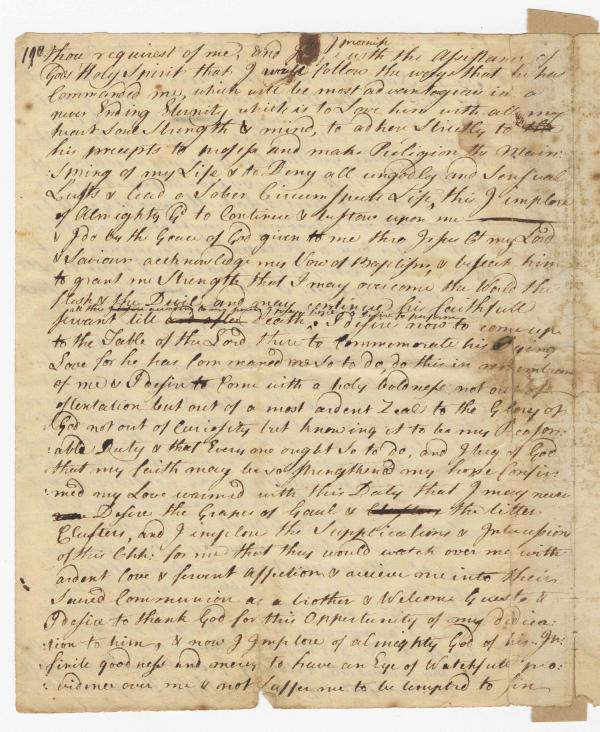 thou requirest of me, and I promise with the Assistance of
Gods Holy Spirit that I would follow the ways that he has
Commanded me, which will be most advantageous in a
never Ending Eternity which is to Love him with all my
heart Soul Strength & mind, to adhere Strictly to
his precepts to profess and make Religion the Main
Spring of my Life & to Deny all ungodly and Sensual
Lusts & lead a Sober Circumspect Life, this I implore
of Almighty Gd to Continue & bestow upon me
& I do by the Grace of God given to me thro Jesus Ct my Lord
& Saviour acknowledge my Vow of Baptism, & beseech him
to grant me Strength that I may overcome the World the
flesh & the Devil, and may continue his faithfull
all this
Servant till and after Death, I desire now to come up
to the Table of the Lord there to Commemorate his Dying
Love for he has Commaned me so to do, do this in remembrance
of me & I desire to Come with a holy boldness not out of
ostentation but out of a most ardent Zeal to the Glory of
God not out of Curiosity but knowing it to be my Reason-
able Duty & that Every one ought so to do, and I beg of God
that my faith may be so strengthened my hope Confir-
med my Love warmed with this Duty that I may never
Desire the Grapes of Gaul & Clusters the bitter
Clusters, and I implore the Supplications & Intercession
of this Chh: for me that they would watch over me with
ardent Love & fervent Affection & receive me into their
Sacred Communion as a brother & Welcome Guest &
I desire to thank God for this Opportunity of my dedica-
tion to him, & now I Implore of almighty God of his In-
finite goodness and mercy to have an Eye of Watchfull pro:
vidence over me & not Suffer me to be tempted to Sin